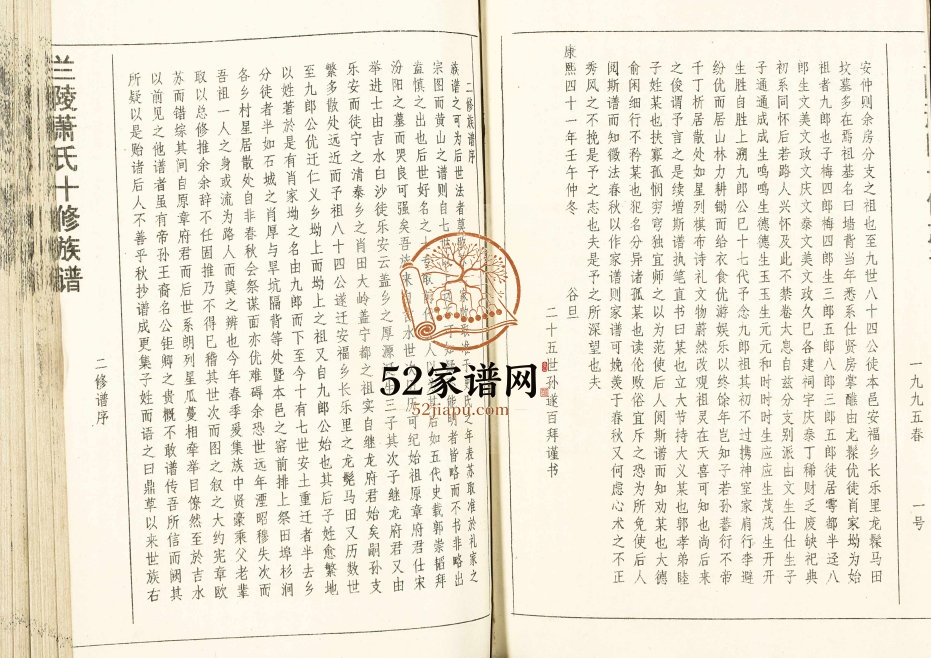 一九九五春
一号
安仲则余房分支之祖也至九世八十四公徒本邑安福乡长乐里龙髹马田
坟墓多在焉祖基名曰墙背当年悉系仕贤房掌醮由龙髹优徒肖家坳为始
祖者九郎也子梅四郎梅四郎生三郎五郎八郎三郎五郎徒居雩都半迳八
郎生文美文政文庆文泰文美文政文久巳各建祠字庆泰丁稀财乏废缺祀典
初系同怀后若路人兴怀及此不禁卷太息自兹分支别派由文生仕仕生子
子通通成成生鸣鸣生德德生玉玉生元元和时时时生应应生茂茂生开开
生胜自胜上溯九郎公巳十七代予念九郎祖其初不过携神室家肩行李避
纷优而居山林力耕锄而给衣食优游娱乐以终馀年岂知子若孙蕃衍不啻
千丁析居散处如星列棋布诗礼文物蔚然改观祖灵在天喜可知也尚后来
之俊谓予言之是续增斯谱执笔直书曰某也立大节待大义某也郭孝弟睦
子姓某也扶寡孤悯穷独宜师之以为范使后人阅斯谱而知劝某也大德
俞闲细行不矜某也犯名分异诸孤某也读伦败俗宜斥之恐为所免使后人
阅斯谱而知徽法春秋以作家谱则家谱可娩羡于春秋又何虑心术之不正
秀风之不挽是予之志也夫是予之所深望也夫
康熙四十一年壬午仲冬 谷旦
二十五世孙遂百拜谨书
二修族谱序
族谱之可为后世法者莫 年表苏取准於礼家之
宗图而黄山之谱则自七世 明者皆略而不书非略出
盖慎之出也后世好名之 人以 其后如五代史载郭崇韬拜
汾阳之墓而哭良可强矣吾 来自 水世 历可纪始祖原章府君仕宋
举进士由吉水白沙徒乐安云盖乡之厚源 生三子其次子继龙府君又由
乐安而徒宁之清泰乡之肖田大岭盖宁都之祖实自继龙府君始矣嗣孙支
繁多散处远近而予祖八十四公遂迁安福乡长乐里之龙髹马田又历数世
至九郎公优迁仁义乡坳上而坳上之祖又自九郎公始也其后子姓愈繁地
以姓著於是有肖家坳之名由九郎而下至今十有七世安土重迁者半去乡
分徒者半如石城之肖厚与旱坑隔背等处暨本邑之窑前排上祭田埠杉涧
各乡村星居散处自非春秋会祭谋面亦优难碍余恐世远年湮昭穆失次而
吾祖一人之身或流为路人而莫之辨也今年春季爰集族中贤豪乘父老辈
取以总修推余余辞不任固推乃不得巳稽其世次而图之叙之大约宪章欧
苏而错综其间自原章府君而后世系朗列星瓜蔓相牵举目僚然至於吉水
以前见之他谱者虽有帝孙王裔名公钜卿之贵概不敢谱传吾所信而阙其
所疑以是贻诸后人不善乎秋抄谱成更集子姓而语之曰鼎草以来世族右
二修谱序
兰陵萧氏十修族谱
52家谱网
52jiapu.com